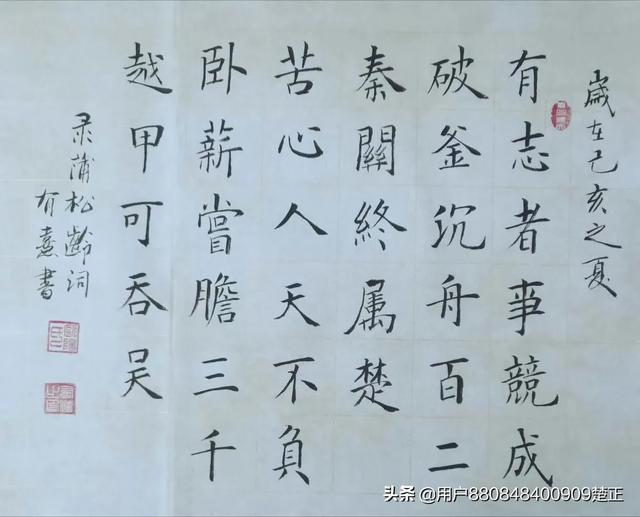 歲在己亥之夏
有志者事競成
破釜沉舟百二
秦關終属楚
苦心人天不負
卧薪嘗膽三千
越甲可吞吴
录蒲松齡词
有熹書
头条 @用户880848400909楚正